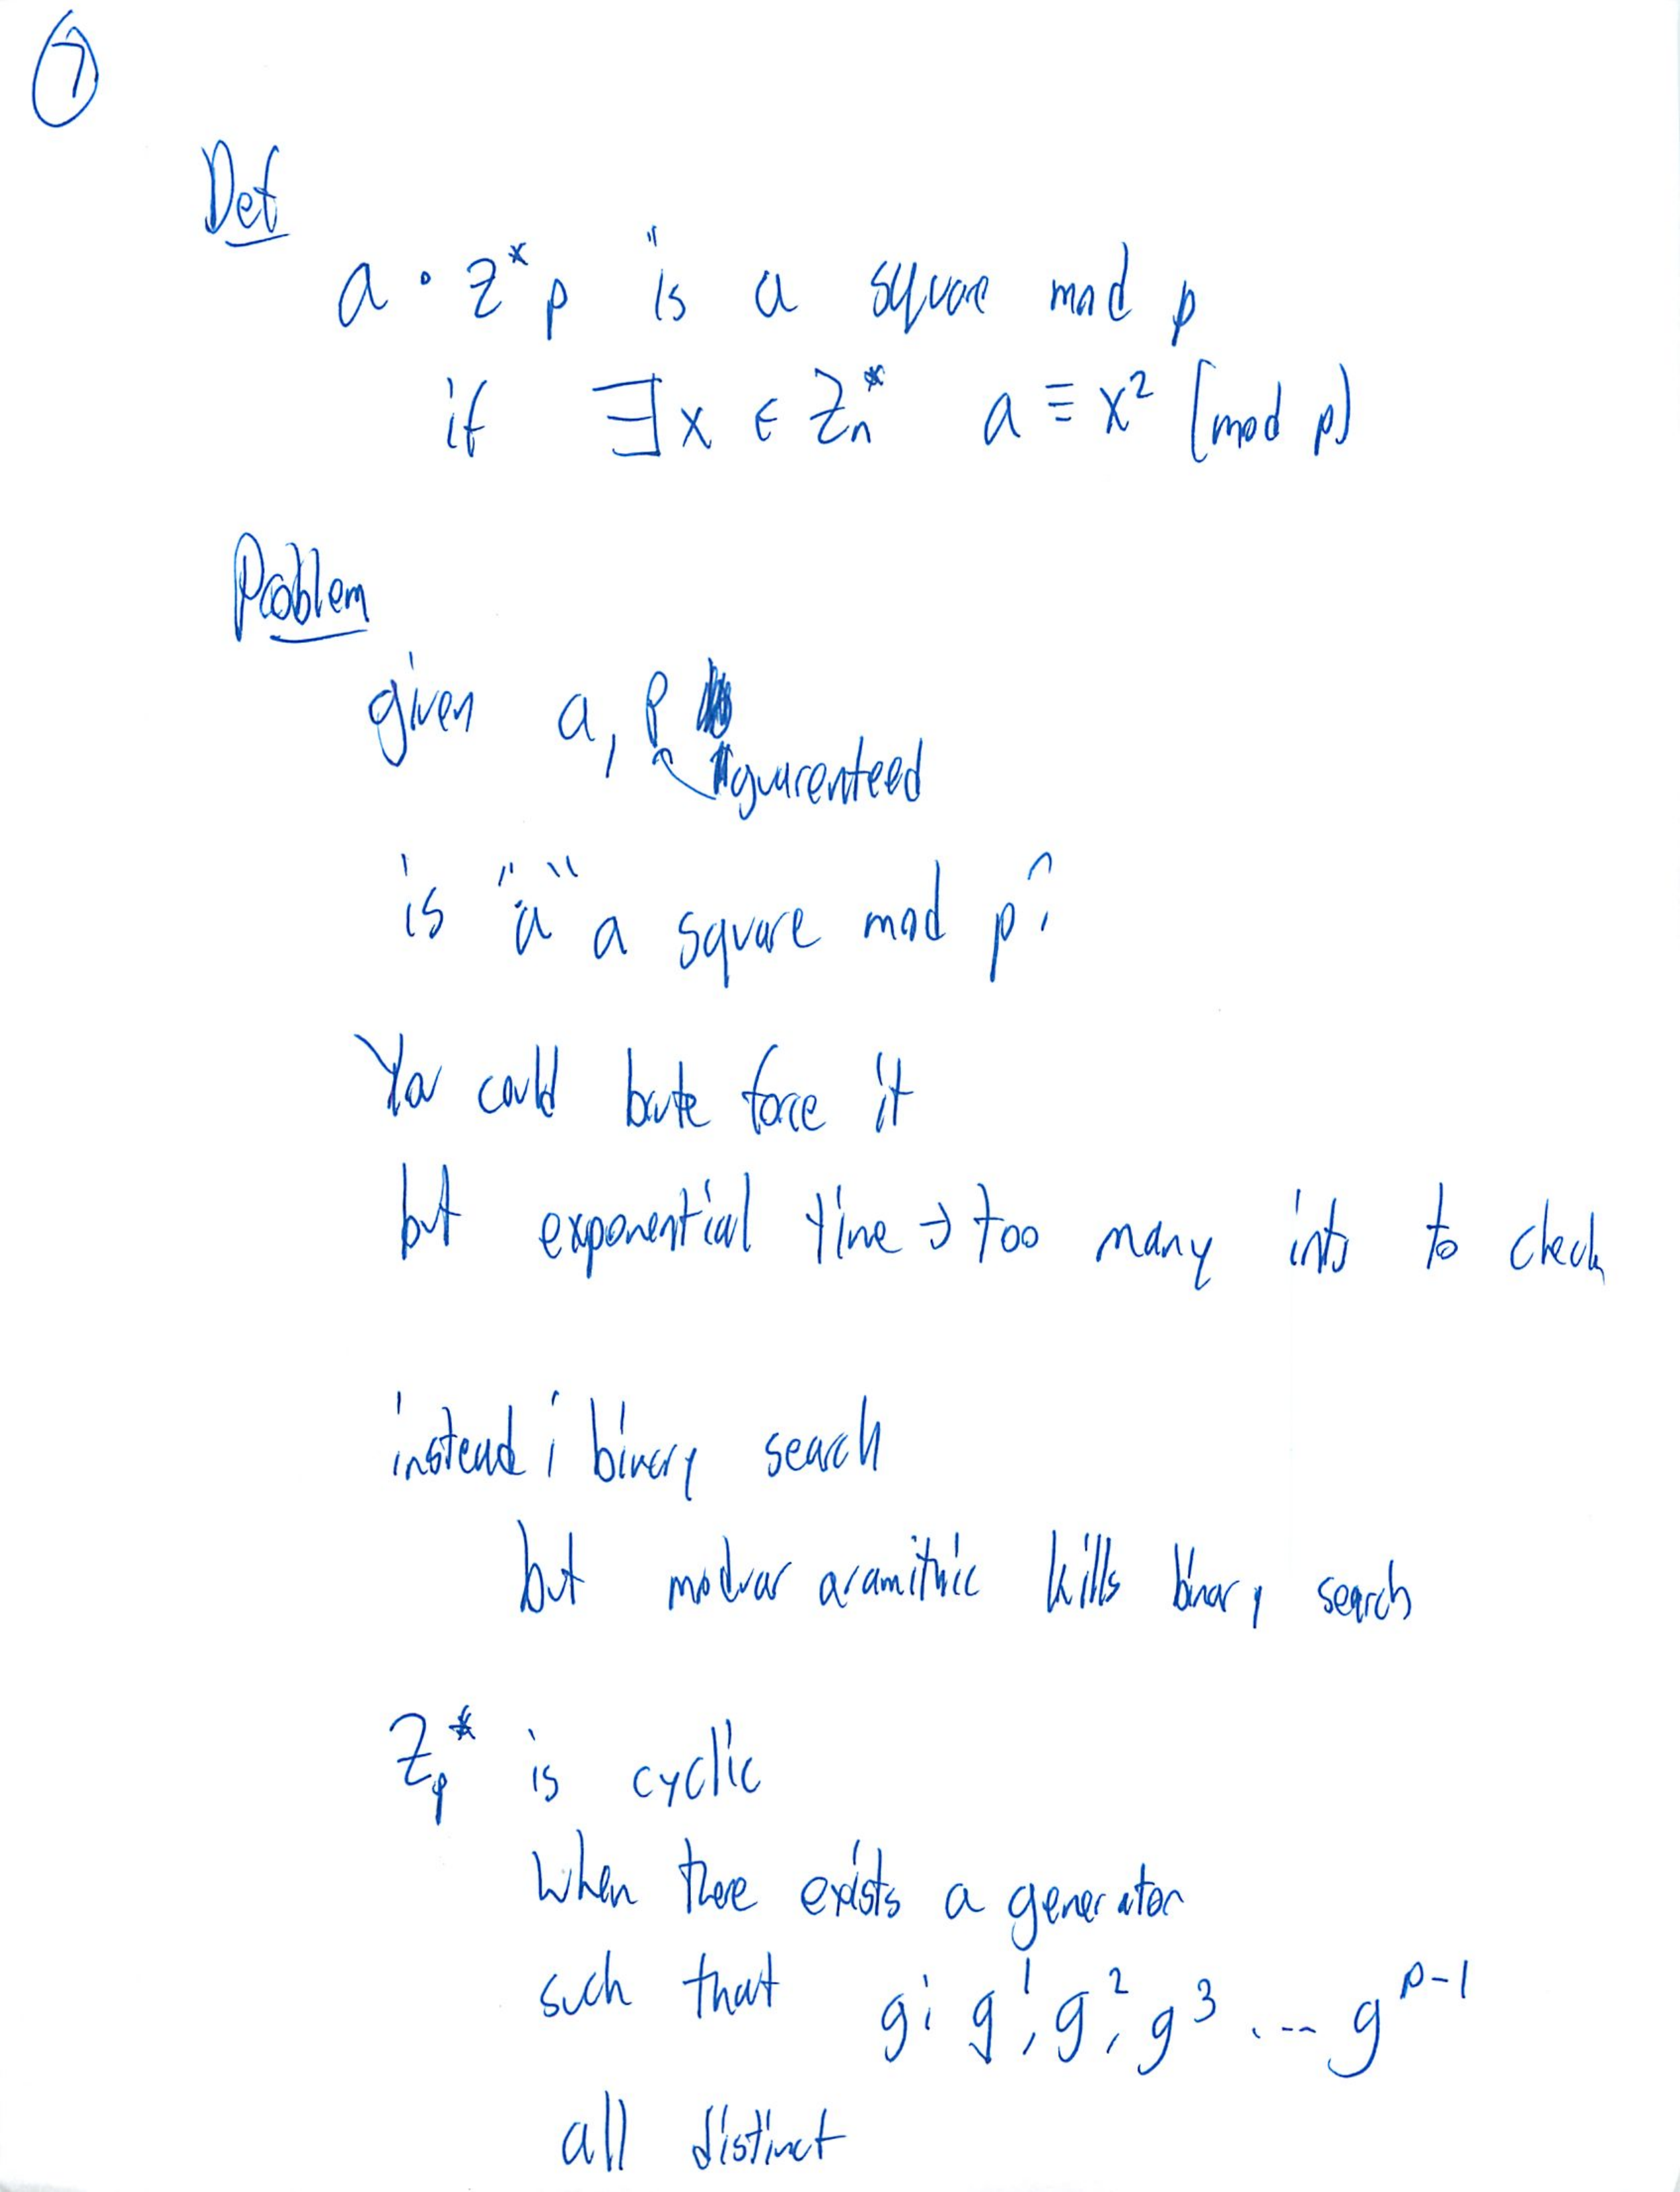 7
Def
a · Z*p "is a square mod p
if ∃x ∈ Zn* a ≡ x² (mod p)
Problem
given a, p
guarenteed
is "a" a square mod p?
You could brute force it
but exponential time → too many ints to check
instead ; binary search
but modvar aramithic kills binary search
Zp* is cyclic
when there exists a generator
such that g: g¹, g², g³ . -- g^p-1
all distinct